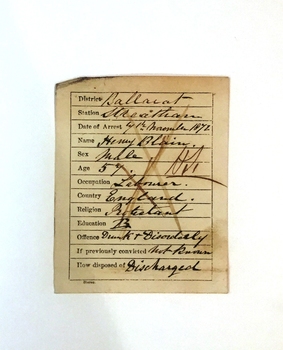 District Ballarat
Station Streatham
Date of Arrest 4th November 1872
Name Henry
Sex Male
Age 57
Occupation Laborer.
Country England.
Religion Protestant
Education
Offence Drunk & Disorderly
If previously convicted Not Known
How disposed of Discharged